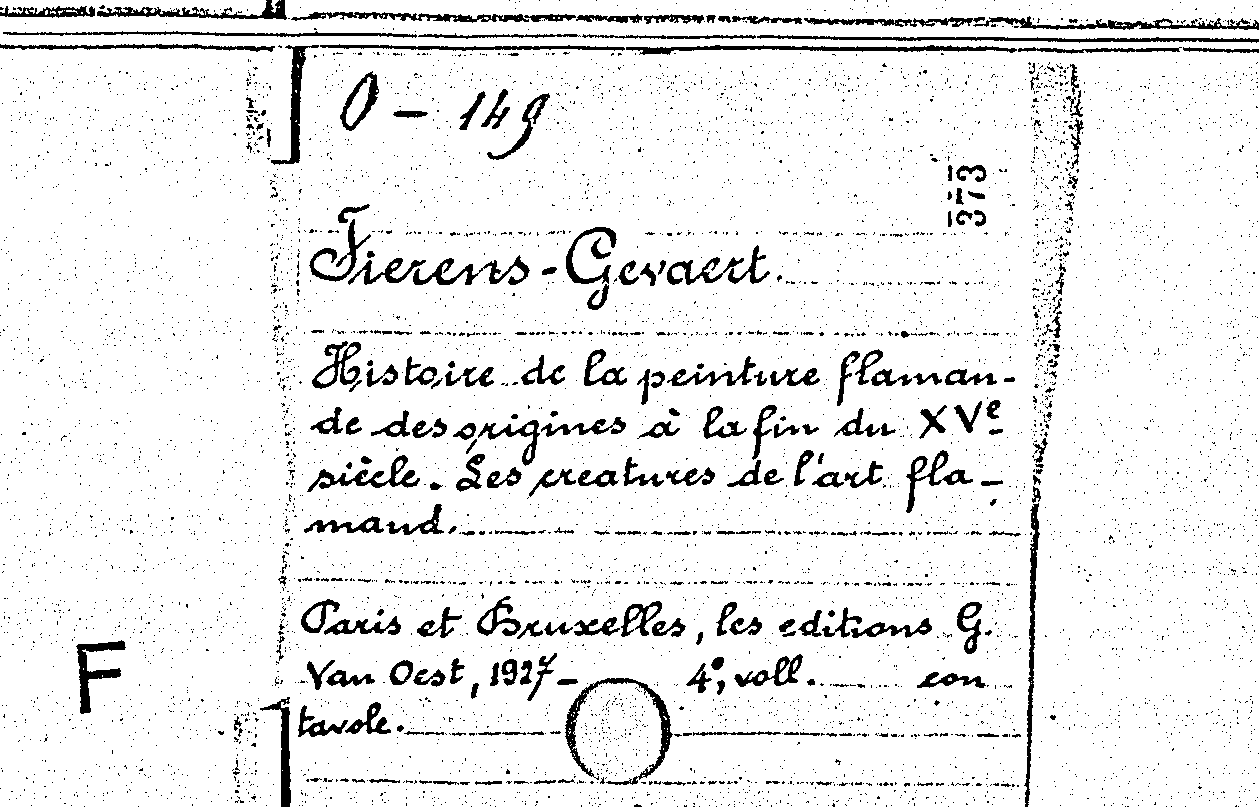 O - 149
373
Fierens-Gevaert.
Histoire de la peinture flaman-
de des origines à la fin du XVe
siècle. Les creatures de l'art fla-
mand.
Paris et Bruxelles, les editions G.
Van Oest, 1927- 4°, voll. con
tavole.
F